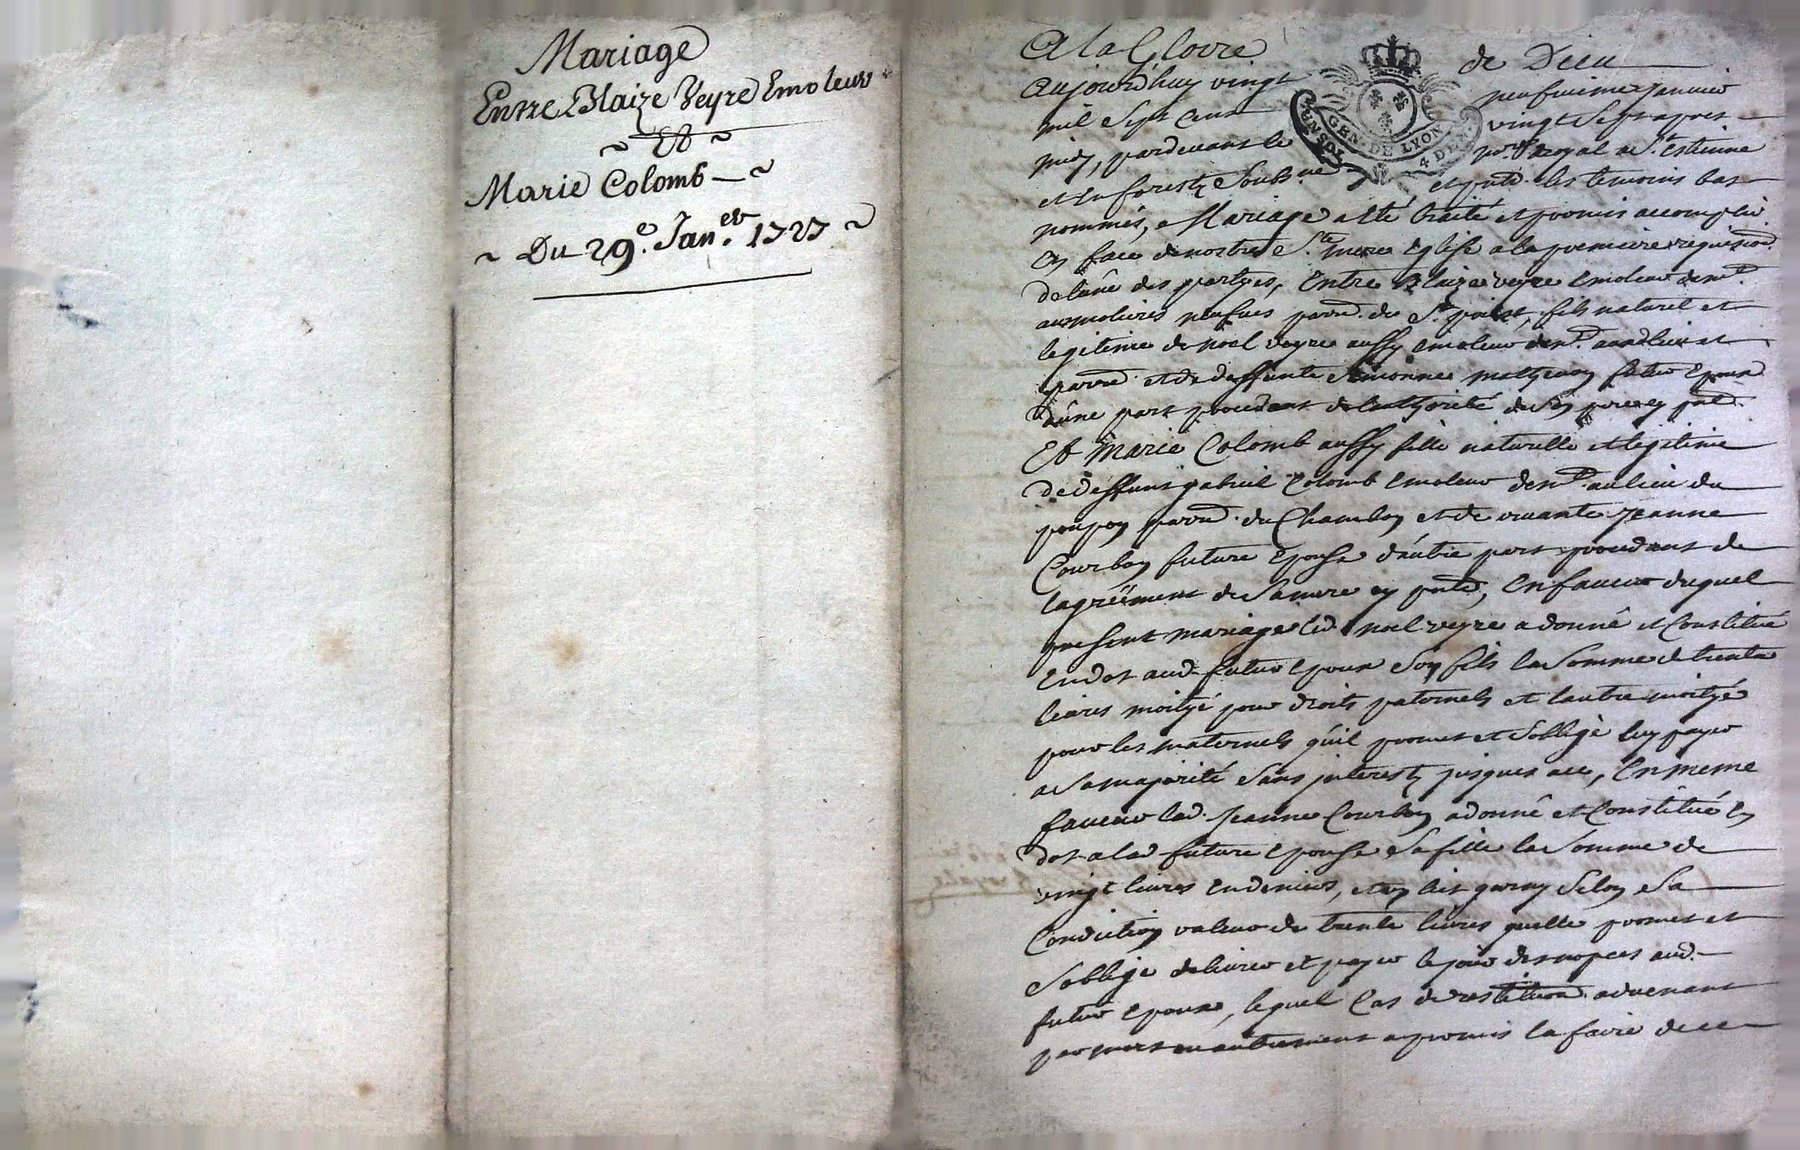 Mariage
Entre Blaize Veyre Emoleur
~ Et ~
Marie Colomb — ~
~ Du 29e. Janer. 1727 ~
A la Gloire de Dieu
aujourd'huy vingt neufvieme janvier
mil sept cent vingt sept apres
midy, pardevant le no.re royal a St. Estienne
et en forestz soubz.ne et pntz. les temoins bas
nommés, Mariage a été traité et promis accomplir
en face de nostre Ste. mere Eglise a la premiere requision.
de l'une des partyes, Entre Blaize veyre emoleur dem.t
aux molieres neufves parr.e du St. , fils naturel et
legitime de Noel veyre aussy emoleur dem.t aud lieu et
parr.e et de deffunte futur Epoux
d'une part procedant de l'authorité de son pere cy pnt.
Et Marie Colomb aussy fille naturelle et legitime
de deffunt gabriel Colomb emoleur dem.t au lieu du
parr.e du Chambon et de vivante jeanne
Courbon future Epouse d'autre part procedant de
l'agréement de sa mere cy pnte, En faveur duquel
present mariage led. noel veyre a donné et Constitué
En dot aud futur Epoux son fils la somme de trente
livres moityé pour droits paternels et l'autre moityé
pour les maternels qu'il promet et s'obblige luy payer
a sa majorité sans interestz jusques a ce, En meme
faveur lad. jeanne Courbon a donné et Constitué En
dot a lad future Epouse sa fille la somme de
vingt livres en deniers, et un lict garny selon sa
Condiction valeur de trente livres qu'elle promet et
s'obblige delivrer et payer le jour des nopces aud.
futur Epoux, lequel Cas de restitution advenant
par mort ou autrement a promis la faire de ce